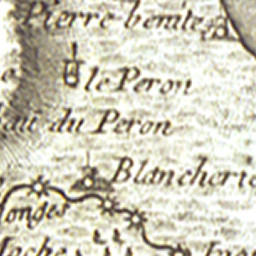 Pierre benite
le Peron
du Peron
Blancherie
onges